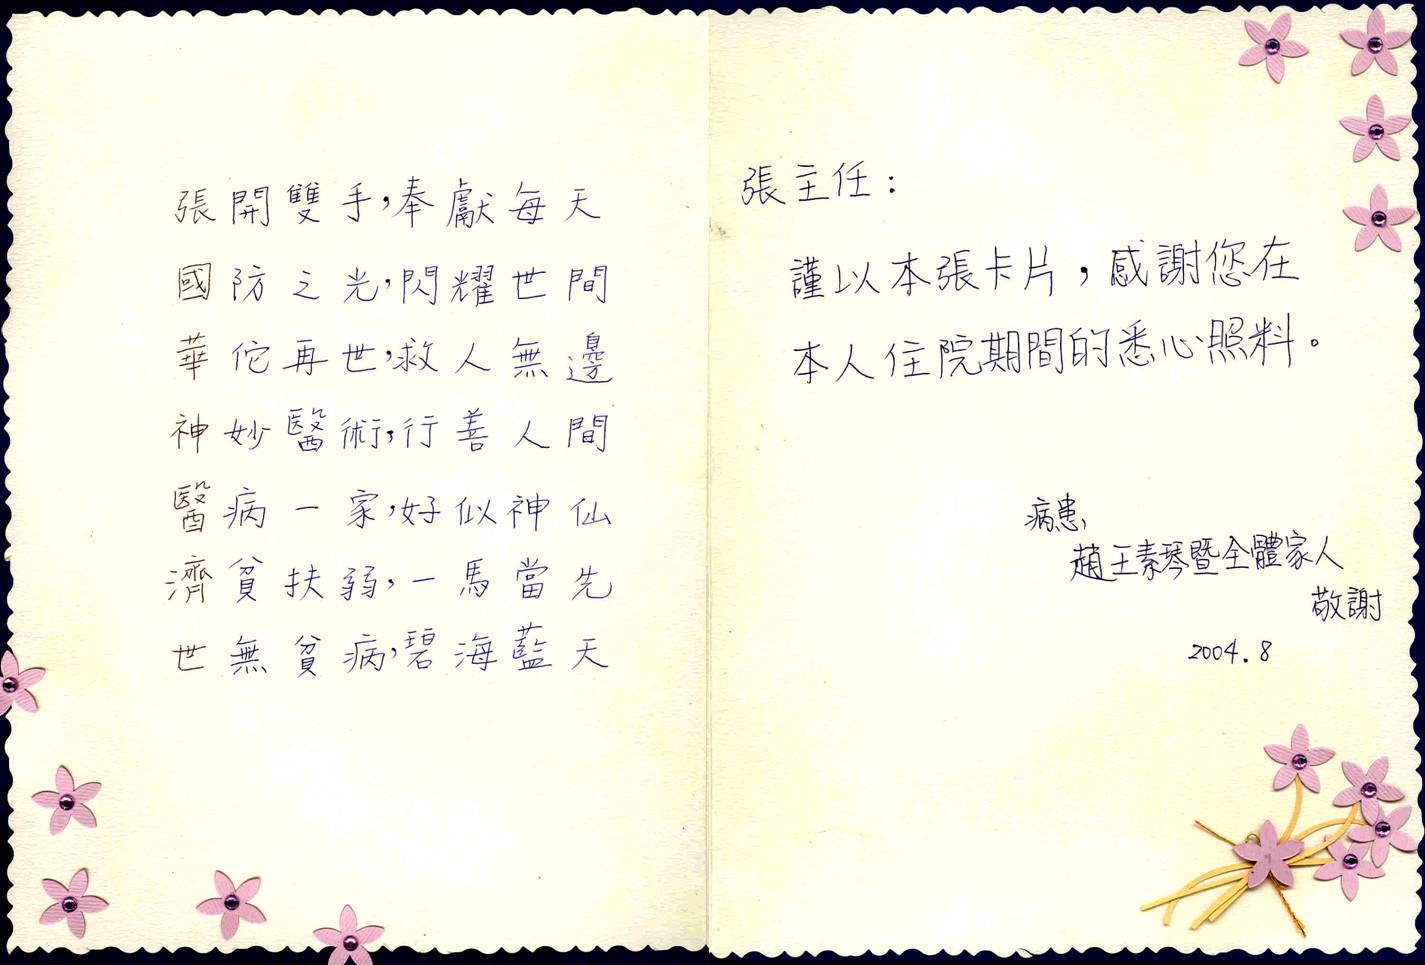 張開雙手,奉獻每天
國防之光,閃耀世間
華佗再世,救人無邊
神妙醫術,行善人間
醫病一家,好似神仙
濟貧扶弱,一馬當先
世無貧病,碧海藍天
張主任:
謹以本張卡片,感謝您在
本人住院期間的悉心照料。
病患,
趙王素琴暨全體家人
敬謝
2004.8